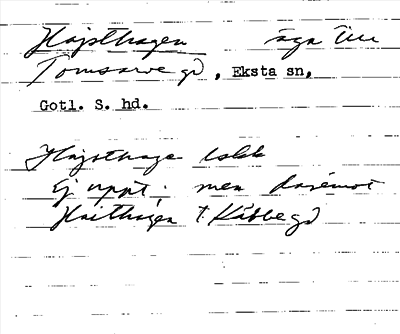 Hajsthagen äga till
Tomsarve gd, Eksta sn,
Gotl. S. hd.
Hajsthage
Ej uppt. men däremot
Haithagen t. Kåbbe gd